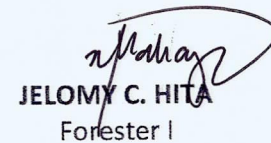 JELOMY C. HITA
Forester I